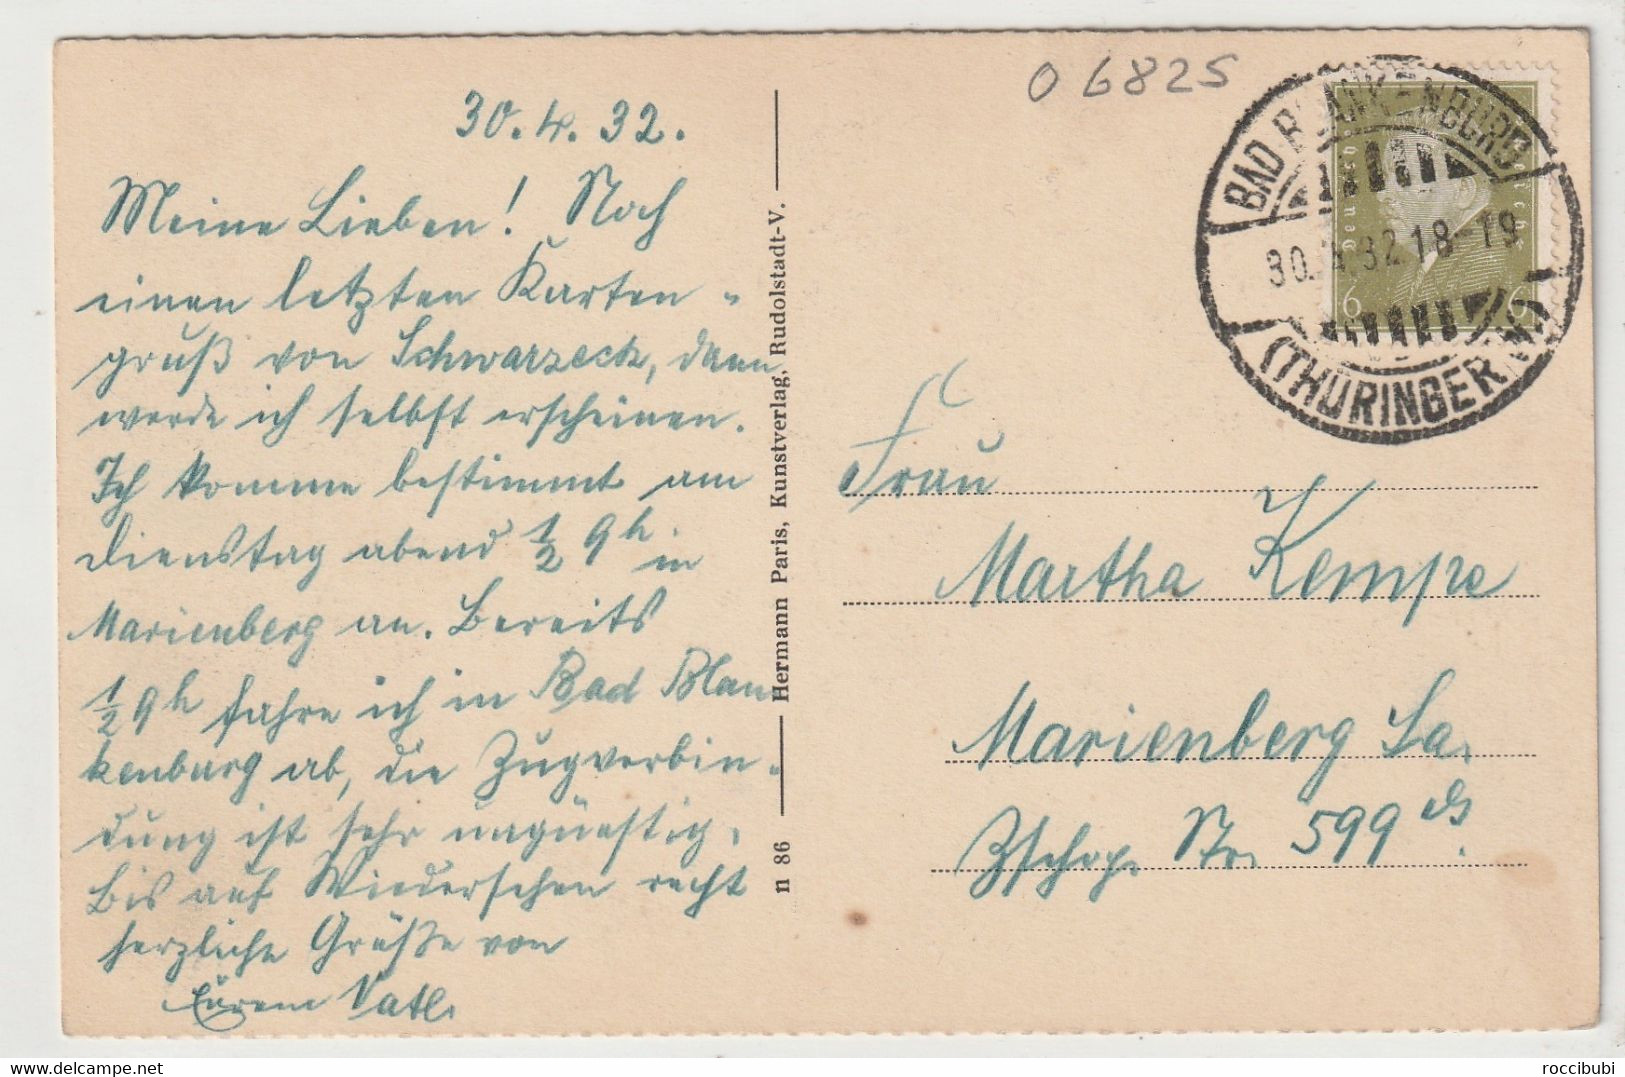 30.4.32.
Meine Lieben! Noch
einen letzten Karten-
gruß von Schwarzeck, dann
werde ich selbst erscheinen.
Ich komme bestimmt am
Dienstag abend ½ 9h in
Marienberg an. Bereits
½ 9h fahre ich in Bad Blan
kenburg ab, die Zugverbin-
dung ist sehr ungünstig.
Bis auf Wiedersehen recht
herzliche Grüße von
Eurem
n 86 Hermann Paris, Kunstverlag, Rudolstadt-V.
0 6825
BAD BLANKENBURG
30.4.32 18-19
(THÜRINGER WALD)
Deutsches Reich
6 6
Frau
Martha Kempe
Marienberg Sa.
Zschop. Str. 599
delcampe.net
roccibubi